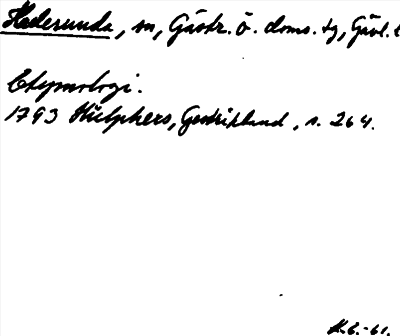 Hedesunda, sn, Gästr. ö. doms. tg, Gävl. l
Etymologi.
1793 Hülphers, Gestrikland, s. 264.